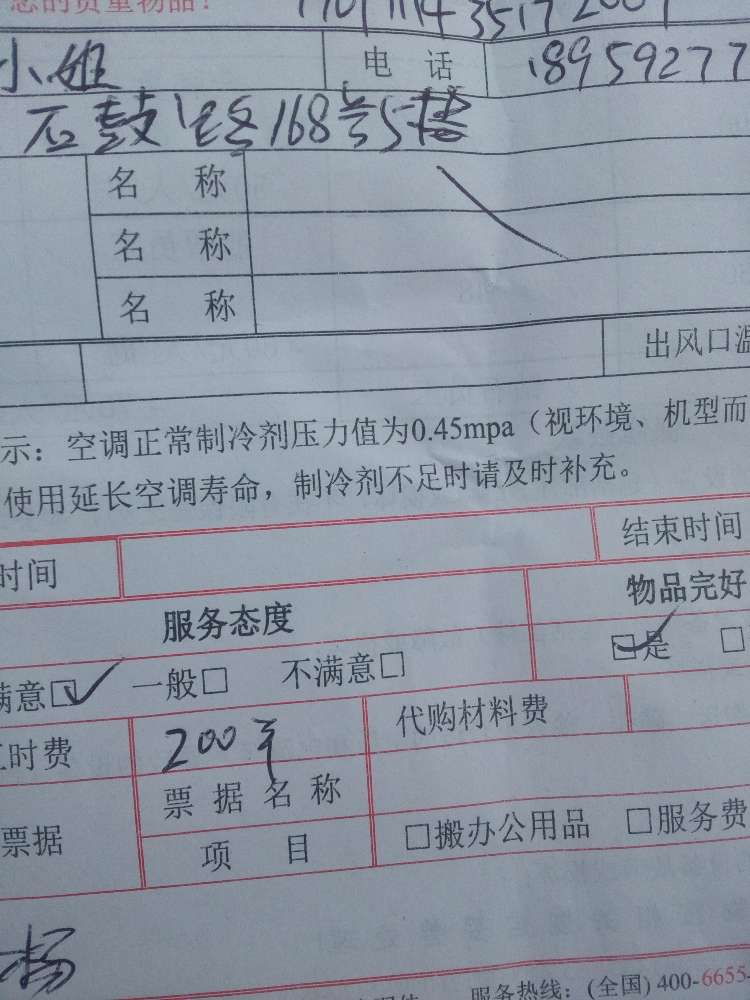 您的贵重物品!
小姐 电 话 18959277
石鼓路168号5楼
名 称
名 称
名 称
出风口温
示：空调正常制冷剂压力值为0.45mpa（视环境、机型而
使用延长空调寿命，制冷剂不足时请及时补充。
时间 结束时间
服务态度 物品完好
满意☑ 一般□ 不满意□ ☑是 □
工时费 200 代购材料费
票据 票据名称
项 目 □搬办公用品 □服务费
杨
服务热线：(全国) 400-6655-